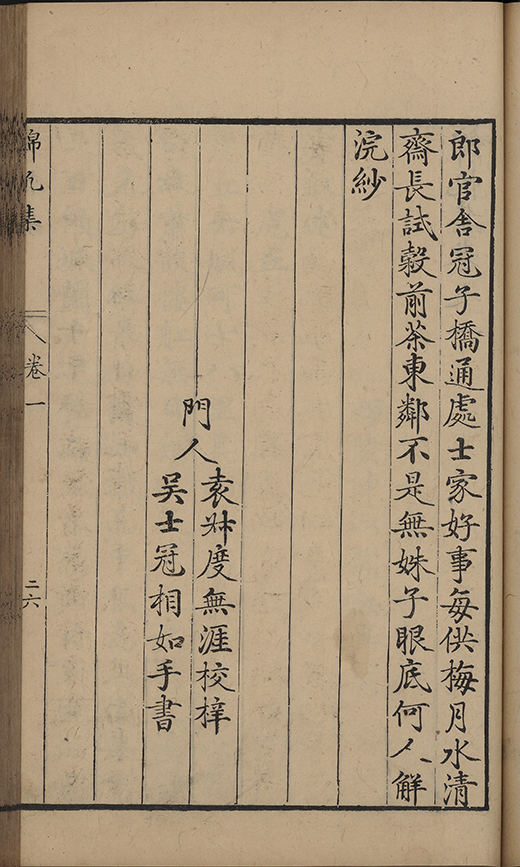 郎官舎冠子橋通處士家好事每供梅月水清
齋長試穀前茶東鄰不是無姝子眼底何人解
浣紗
門人
袁叔度無涯校梓
吳士冠相如手書
錦帆集
卷一
二六